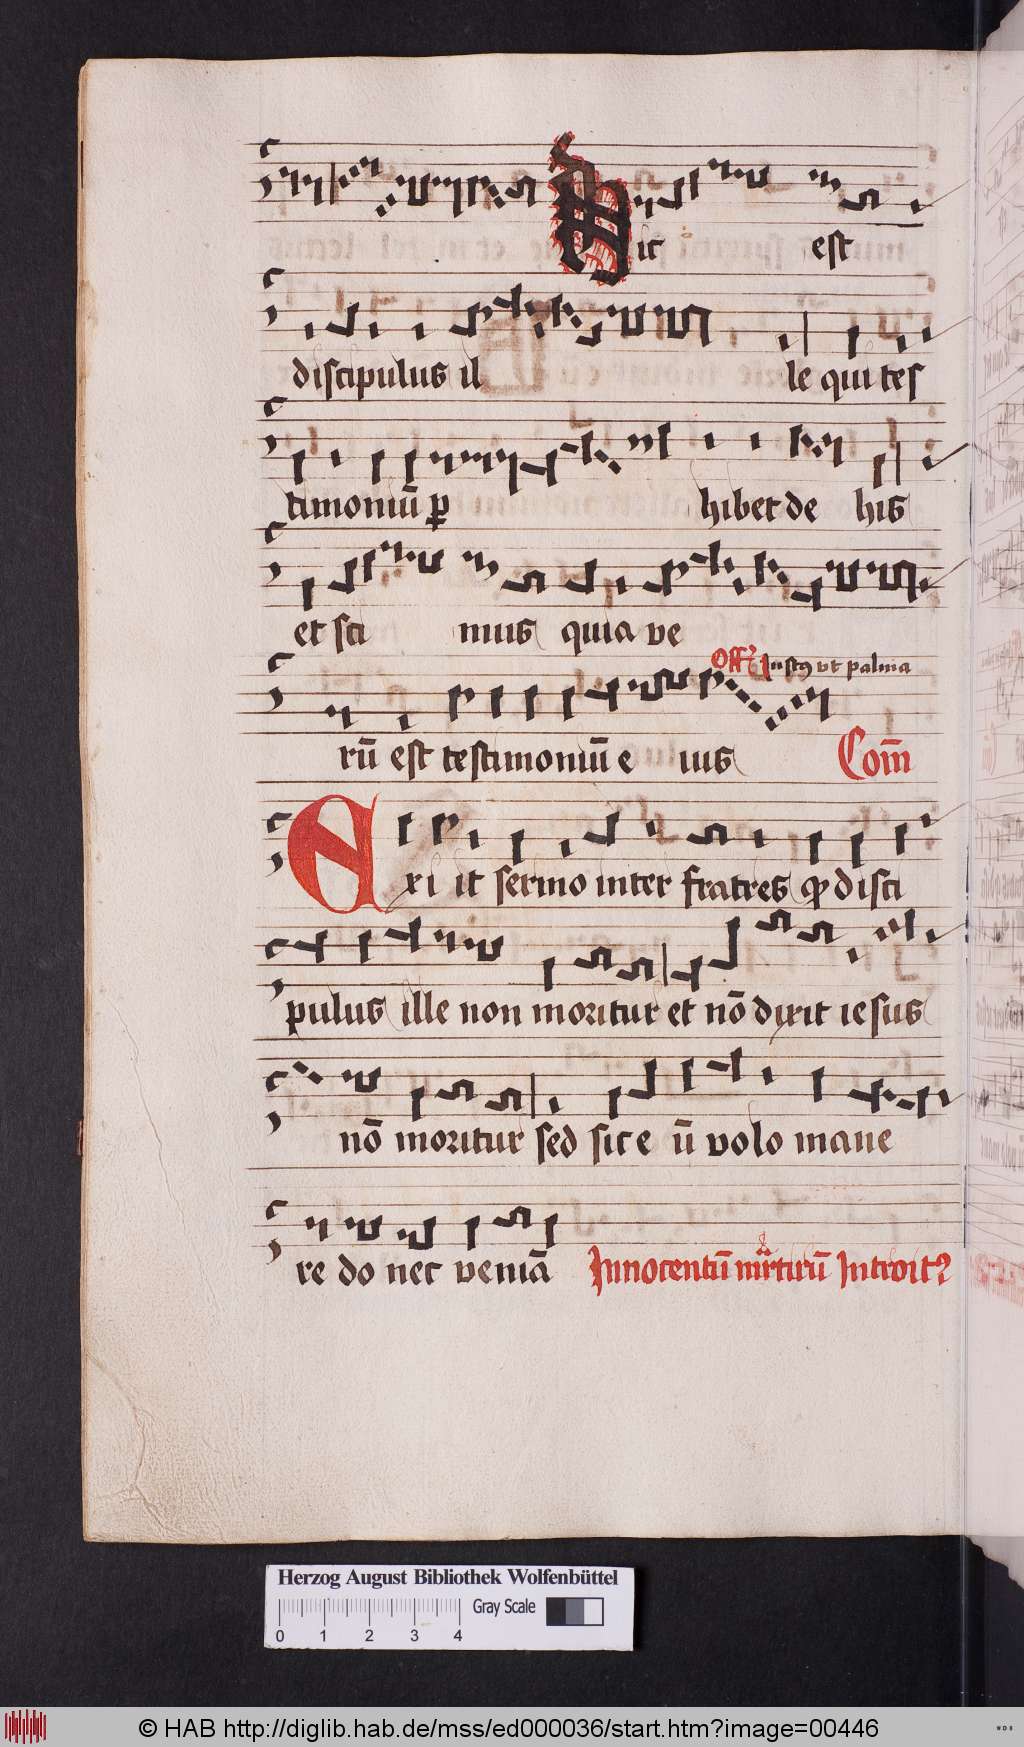 Hic est
discipulus il le qui tes
timoniū ꝑ hibet de his
et sci mus quia ve
Off̄ Iustꝯ vt palma
rū est testimoniū e ius Com̄
Exi it sermo inter fratres ꝙ disci
pulus ille non moritur et nō dixit iesus
nō moritur sed sic e ū volo mane
re do nec veniā Innocentū mr̄tirū Introit
Herzog August Bibliothek Wolfenbüttel
Gray Scale
0 1 2 3 4
© HAB http://diglib.hab.de/mss/ed000036/start.htm?image=00446